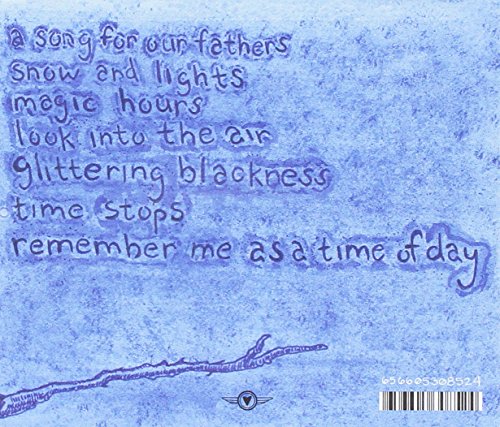 a song for our fathers
snow and lights
magic hours
look into the air
glittering blackness
time stops
remember me as a time of day
656605308524